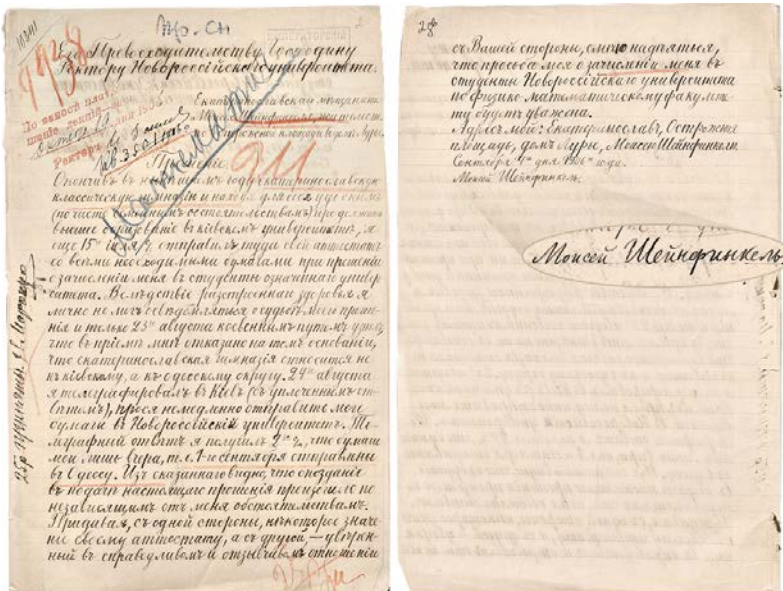 Его Превосходительству Господину
Ректору Новороссійскаго университета.
Прошеніе.
Окончивъ въ нынѣшнемъ году екатеринославскую
классическую гимназію и находя для себя удобнымъ
(по чисто семейнымъ обстоятельствамъ) продолжать
высшее образованіе въ кіевскомъ университетѣ, я
еще 15го іюля отправилъ туда свой аттестатъ
со всѣми необходимыми бумагами при прошеніи
о зачисленіи меня въ студенты означеннаго универ-
ситета. Вслѣдствіе разстроеннаго здоровья я
лично не могъ освѣдомляться о судьбѣ моего проше-
нія и только 23го августа косвеннымъ путемъ узналъ,
что въ пріемѣ мнѣ отказано на томъ основаніи,
что екатеринославская гимназія относится не
къ кіевскому, а къ одесскому округу. 24го августа
я телеграфировалъ въ Кіевъ (съ уплоченнымъ от-
вѣтомъ), прося немедленно отправить мои
бумаги въ Новороссійскій университетъ. Те-
леграфный отвѣтъ я получилъ 2го, что бумаги
мои лишь вчера, т.е. 1го сентября отправлены
въ Одессу. Изъ сказаннаго видно, что опозданіе
въ подачѣ настоящаго прошенія произошло по
независящимъ отъ меня обстоятельствамъ.
Придавая, съ одной стороны, нѣкоторое значе-
ніе своему аттестату, а съ другой, — увѣрен-
ный въ справедливомъ и отзывчивомъ отношеніи
съ Вашей стороны, смѣю надѣяться,
что просьба моя о зачисленіи меня въ
студенты Новороссійскаго университета
по физико-математическому факульте-
ту будетъ уважена.
Адресъ мой: Екатеринославъ, Острожная
площадь, домъ Буре, Моисею Шейнфинкелю.
Сентября 4го дня 1906 года.
Моисей Шейнфинкель.
Моисей Шейнфинкель.